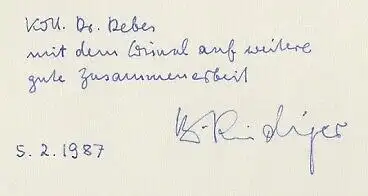 Koll. Dr. Debes
mit dem Wunsch auf weitere
gute Zusammenarbeit
B. Rüdiger
5.2.1987